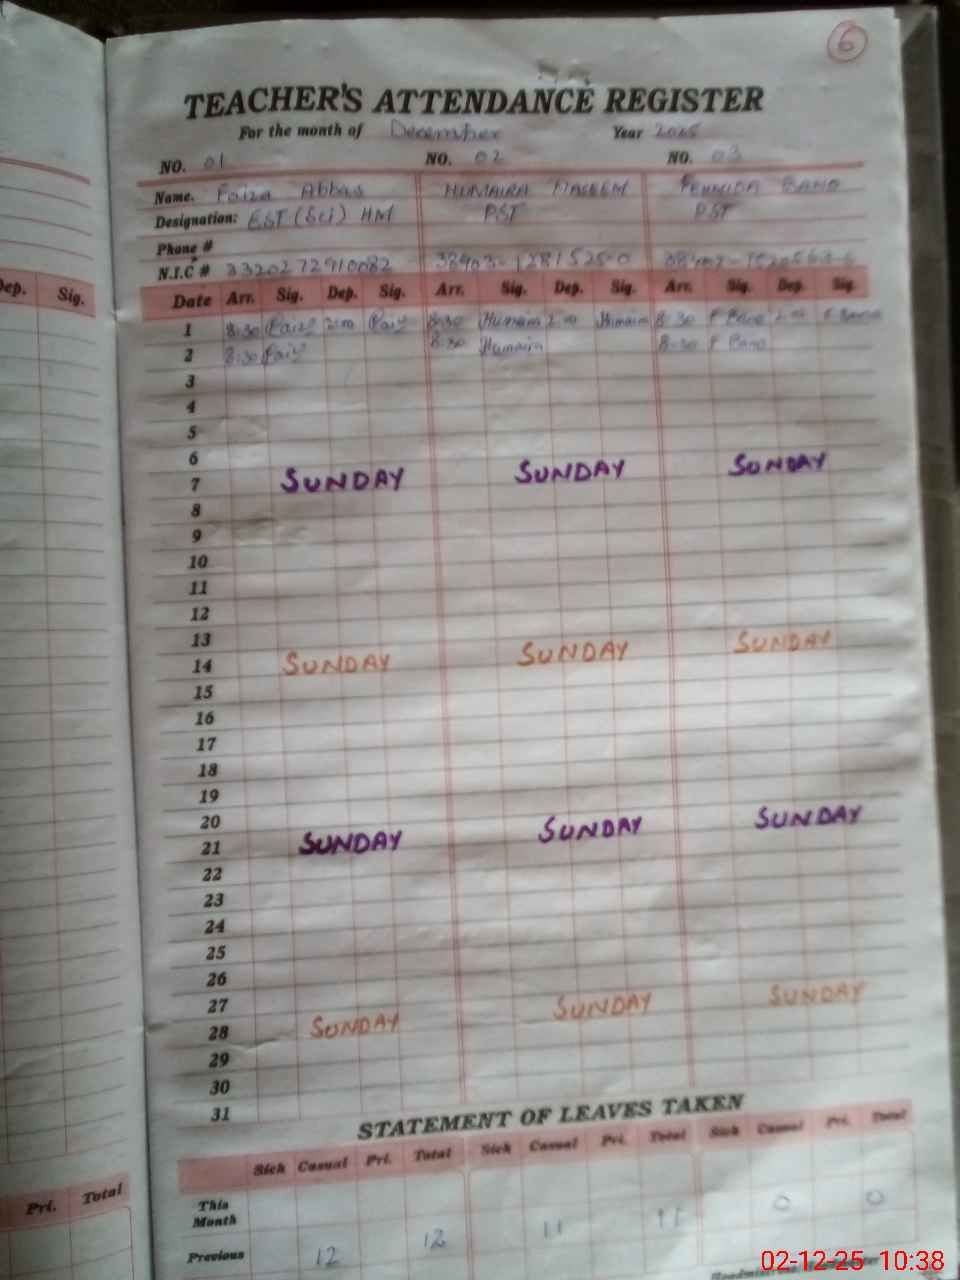 6
TEACHER'S ATTENDANCE REGISTER
For the month of December Year 2025
NO. 01 NO. 02 NO. 03
Name. Faiza Abbas HUMAIRA NASEEM BANO
Designation: EST (Sci) HM PST PST
Phone #
N.I.C # 3320272910082 38403-1281525-0
Date Arr. Sig. Dep. Sig. Arr. Sig. Dep. Sig. Arr. Sig. Dep. Sig.
1 8:30 2:00 8:30 Humaira 2:00 Humaira 8:30 F Bano 2:00 F Bano
2 8:30 8:30 Humaira 8:30 F Bano
3
4
5
6
7 SUNDAY SUNDAY SUNDAY
8
9
10
11
12
13
14 SUNDAY SUNDAY SUNDAY
15
16
17
18
19
20
21 SUNDAY SUNDAY SUNDAY
22
23
24
25
26
27
28 SUNDAY SUNDAY SUNDAY
29
30
31
STATEMENT OF LEAVES TAKEN
Sick Casual Pri. Total Sick Casual Pri. Total Sick Casual Pri. Total
This Month
Previous 12 12 11 11 0 0
Dep. Sig.
Pri. Total
02-12-25 10:38